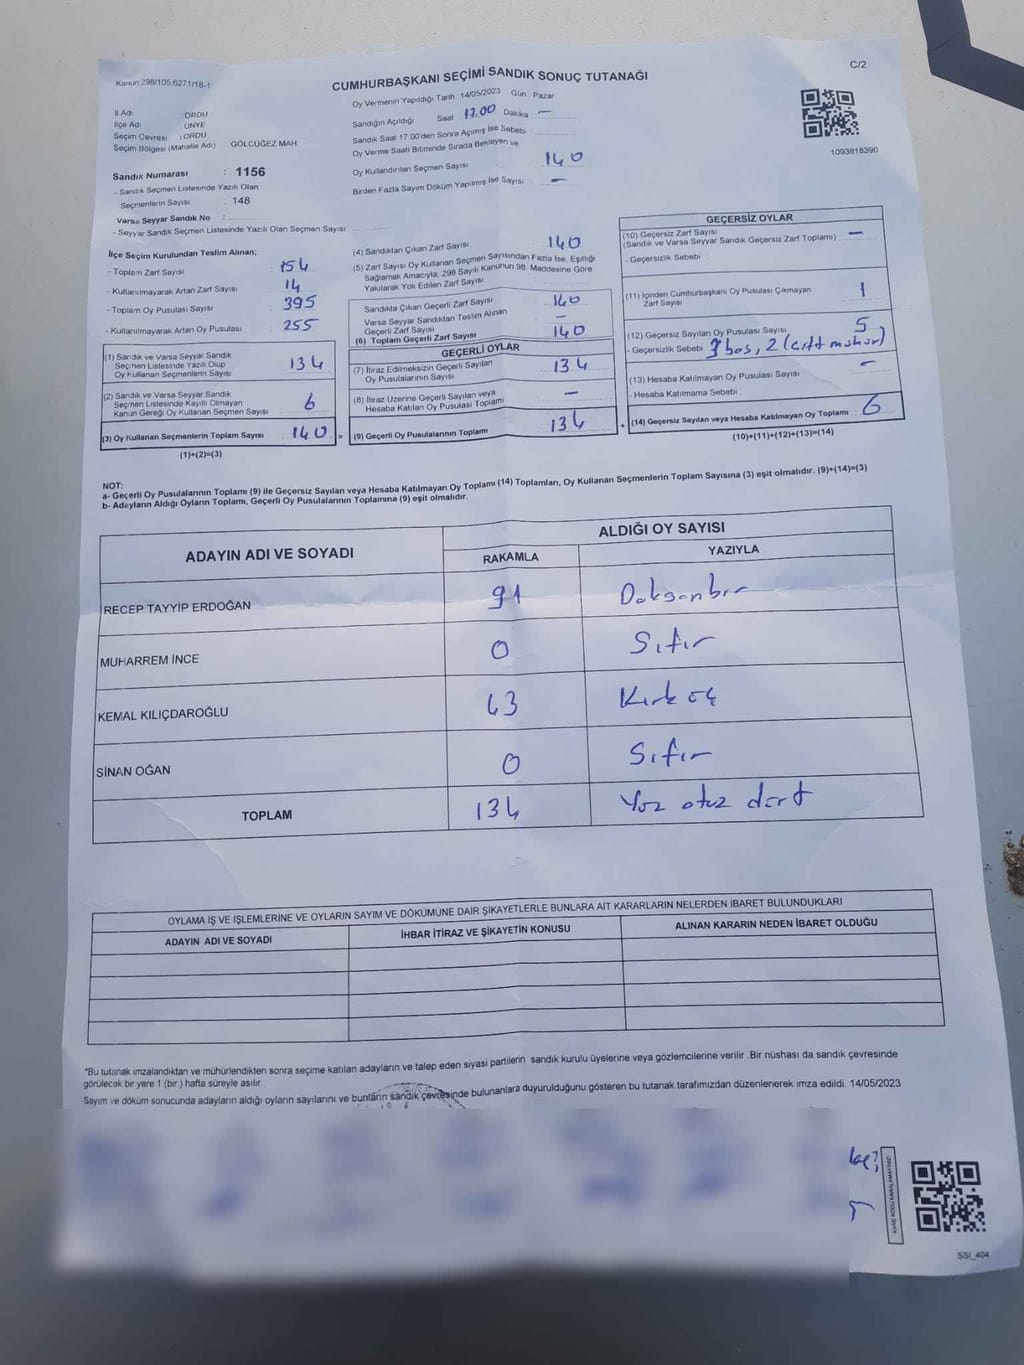 Kanun:298/105,6271/18-1
CUMHURBAŞKANI SEÇİMİ SANDIK SONUÇ TUTANAĞI
C/2
İl Adı ORDU
İlçe Adı ÜNYE
Seçim Çevresi : ORDU
Seçim Bölgesi (Mahalle Adı) : GÖLCÜĞEZ MAH.
Sandık Numarası : 1156
- Sandık Seçmen Listesinde Yazılı Olan
Seçmenlerin Sayısı : 148
Varsa Seyyar Sandık No :
- Seyyar Sandık Seçmen Listesinde Yazılı Olan Seçmen Sayısı:
Oy Vermenin Yapıldığı Tarih :14/05/2023 Gün : Pazar
Sandığın Açıldığı Saat : 17.00 Dakika —
Sandık Saat 17:00'den Sonra Açılmış İse Sebebi :
Oy Verme Saati Bitiminde Sırada Bekleyen ve
Oy Kullandırılan Seçmen Sayısı : 140
Birden Fazla Sayım Döküm Yapılmış İse Sayısı : —
1093818390
İlçe Seçim Kurulundan Teslim Alınan;
- Toplam Zarf Sayısı : 154
- Kullanılmayarak Artan Zarf Sayısı : 14
- Toplam Oy Pusulası Sayısı : 395
- Kullanılmayarak Artan Oy Pusulası : 255
(1) Sandık ve Varsa Seyyar Sandık
Seçmen Listesinde Yazılı Olup
Oy Kullanan Seçmenlerin Sayısı : 134
(2) Sandık ve Varsa Seyyar Sandık
Seçmen Listesinde Kayıtlı Olmayan
Kanun Gereği Oy Kullanan Seçmen Sayısı : 6
(3) Oy Kullanan Seçmenlerin Toplam Sayısı : 140 =
(1)+(2)=(3)
(4) Sandıktan Çıkan Zarf Sayısı : 140
(5) Zarf Sayısı Oy Kullanan Seçmen Sayısından Fazla İse, Eşitliği
Sağlamak Amacıyla, 298 Sayılı Kanunun 98. Maddesine Göre
Yakılarak Yok Edilen Zarf Sayısı :
Sandıkta Çıkan Geçerli Zarf Sayısı : 140
Varsa Seyyar Sandıktan Teslim Alınan
Geçerli Zarf Sayısı : —
(6) Toplam Geçerli Zarf Sayısı : 140
GEÇERLİ OYLAR
(7) İtiraz Edilmeksizin Geçerli Sayılan
Oy Pusulalarının Sayısı : 134
(8) İtiraz Üzerine Geçerli Sayılan veya
Hesaba Katılan Oy Pusulası Toplamı : —
(9) Geçerli Oy Pusulalarının Toplamı : 134 +
GEÇERSİZ OYLAR
(10) Geçersiz Zarf Sayısı : —
(Sandık ve Varsa Seyyar Sandık Geçersiz Zarf Toplamı)
- Geçersizlik Sebebi :
(11) İçinden Cumhurbaşkanı Oy Pusulası Çıkmayan
Zarf Sayısı : 1
(12) Geçersiz Sayılan Oy Pusulası Sayısı : 5
- Geçersizlik Sebebi : 3 boş, 2 (çift mühür)
(13) Hesaba Katılmayan Oy Pusulası Sayısı : —
- Hesaba Katılmama Sebebi :
(14) Geçersiz Sayılan veya Hesaba Katılmayan Oy Toplamı : 6
(10)+(11)+(12)+(13)=(14)
NOT:
a- Geçerli Oy Pusulalarının Toplamı (9) ile Geçersiz Sayılan veya Hesaba Katılmayan Oy Toplamı (14) Toplamları, Oy Kullanan Seçmenlerin Toplam Sayısına (3) eşit olmalıdır. (9)+(14)=(3)
b- Adayların Aldığı Oyların Toplamı, Geçerli Oy Pusulalarının Toplamına (9) eşit olmalıdır.
ADAYIN ADI VE SOYADI
ALDIĞI OY SAYISI
RAKAMLA YAZIYLA
RECEP TAYYİP ERDOĞAN 91 Doksanbir
MUHARREM İNCE 0 Sıfır
KEMAL KILIÇDAROĞLU 43 Kırk üç
SİNAN OĞAN 0 Sıfır
TOPLAM 134 Yüz otuz dört
OYLAMA İŞ VE İŞLEMLERİNE VE OYLARIN SAYIM VE DÖKÜMÜNE DAİR ŞİKAYETLERLE BUNLARA AİT KARARLARIN NELERDEN İBARET BULUNDUKLARI
ADAYIN ADI VE SOYADI İHBAR İTİRAZ VE ŞİKAYETİN KONUSU ALINAN KARARIN NEDEN İBARET OLDUĞU
*Bu tutanak imzalandıktan ve mühürlendikten sonra seçime katılan adayların ve talep eden siyasi partilerin sandık kurulu üyelerine veya gözlemcilerine verilir .Bir nüshası da sandık çevresinde
görülecek bir yere 1 (bir ) hafta süreyle asılır.
Sayım ve döküm sonucunda adayların aldığı oyların sayılarını ve bunların sandık çevresinde bulunanlara duyurulduğunu gösteren bu tutanak tarafımızdan düzenlenerek imza edildi. 14/05/2023
KARE KODU KARALAMAYINIZ!
SSI_404